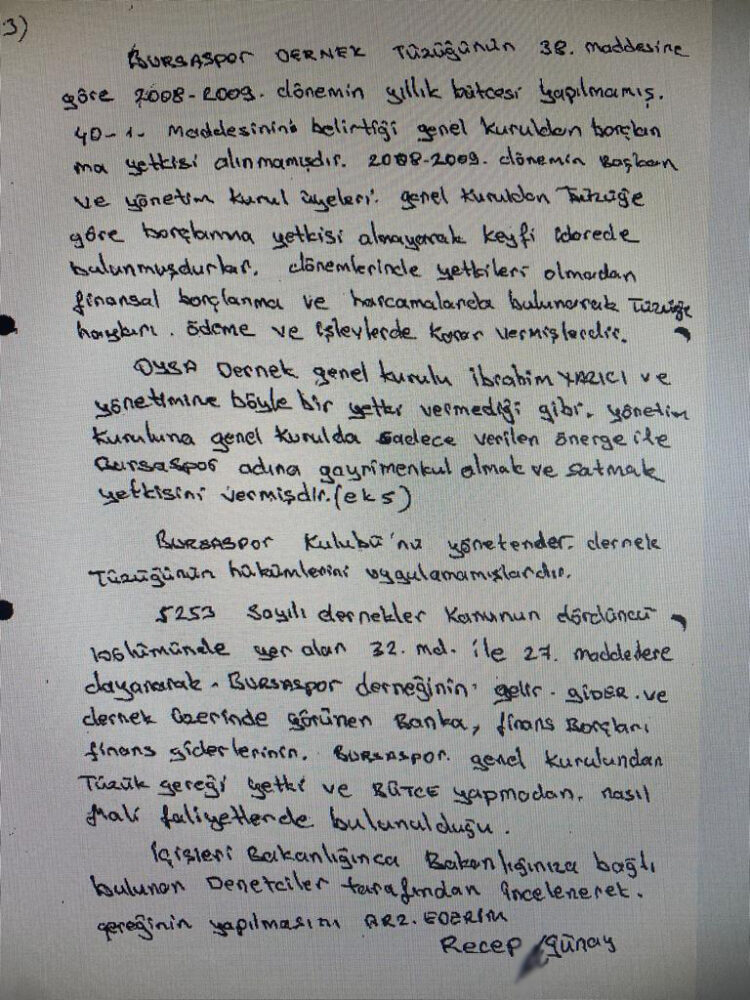 3)
BURSASPOR DERNEK Tüzüğünün 38. maddesine
göre 2008-2009. dönemin yıllık bütcesi yapılmamış.
40-1- Maddesininin belirtiği genel kuruldan borçlan
ma yetkisi alınmamışdır. 2008-2009. dönemin Başkan
ve yönetim kurul üyeleri. genel kuruldan Tüzüğe
göre borçlanma yetkisi almayarak keyfi idarede
bulunmuşdurlar. dönemlerinde yetkileri olmadan
finansal borçlanma ve harcamalarda bulunarak Tüzüğe
haykırı. ödeme ve işleylerde karar vermişlerdir.
OYSA Dernek genel kurulu İbrahim YAZICI ve
yönetimine böyle bir yetki vermediği gibi. yönetim
kuruluna genel kurulda sadece verilen önerge ile
Bursaspor adına gayrimenkul almak ve satmak
yetkisini vermişdir. (ek 5)
BURSASPOR Kulubü'nü yönetender. dernek
Tüzüğünün hükümlerini uygulamamışlardır.
5253 Sayılı dernekler Kanunun dördüncü
bölümünde yer alan 32. md. ile 27. maddedere
dayanarak. BURSASPOR derneğinin. gelir. GİDER. ve
dernek üzerinde görünen Banka, finans Borçları
finans giderlerinin. BURSASPOR. genel kurulundan
Tüzük gereği yetki ve BÜTCE yapmadan. nasıl
Mali faliyetlerde bulunulduğu.
İçişleri Bakanlığınca Bakanlığınıza bağlı
bulunan Denetciler tarafından incelenerek.
gereğinin yapılmasını ARZ. EDERİM
Recep Günay